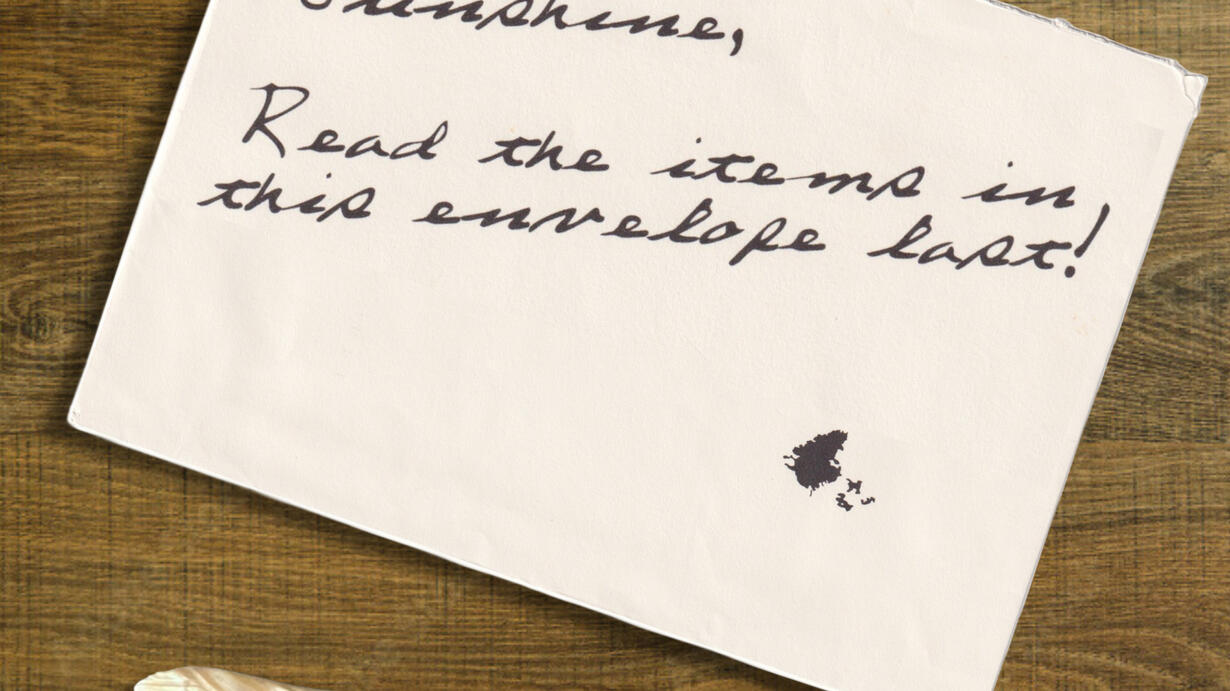 Sunshine,
Read the items in
this envelope last!